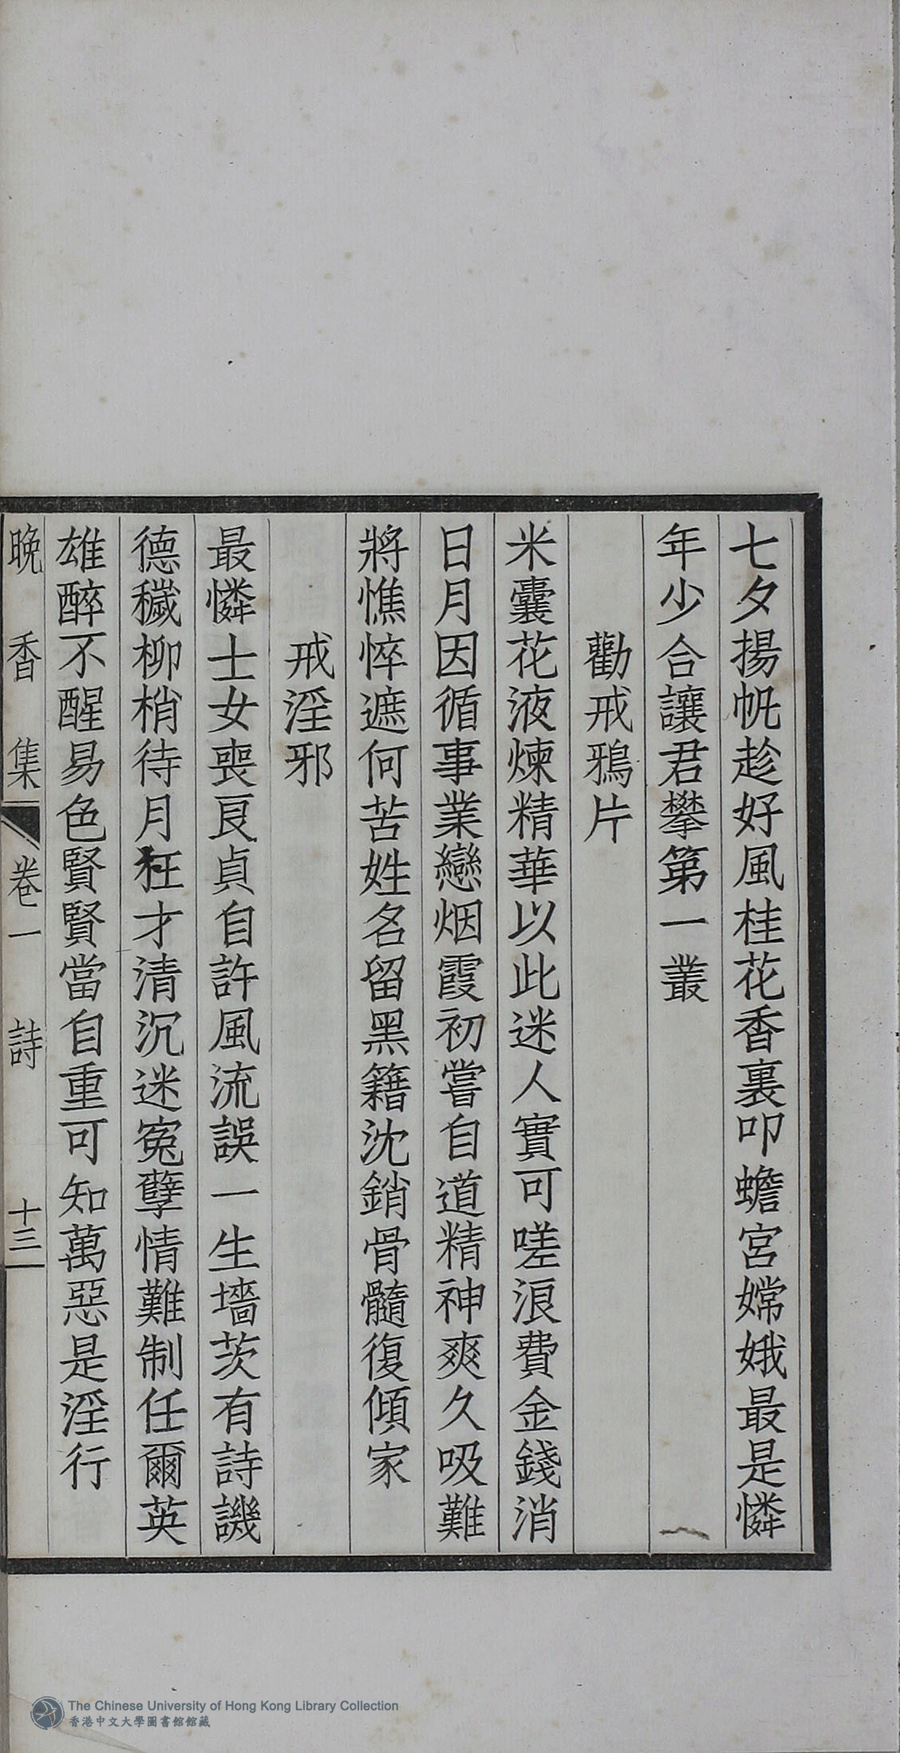 七夕揚帆趁好風桂花香裏叩蟾宮嫦娥最是憐
年少合讓君攀第一叢
勸戒鴉片
米囊花液煉精華以此迷人實可嗟浪費金錢消
日月因循事業戀烟霞初嘗自道精神爽久吸難
將憔悴遮何苦姓名留黑籍沈銷骨髓復傾家
戒淫邪
最憐士女喪良貞自許風流誤一生墻茨有詩譏
德穢柳梢待月枉才清沉迷寃孽情難制任爾英
雄醉不醒易色賢賢當自重可知萬惡是淫行
晚香集 卷一 詩 十三
The Chinese University of Hong Kong Library Collection
香港中文大學圖書館館藏